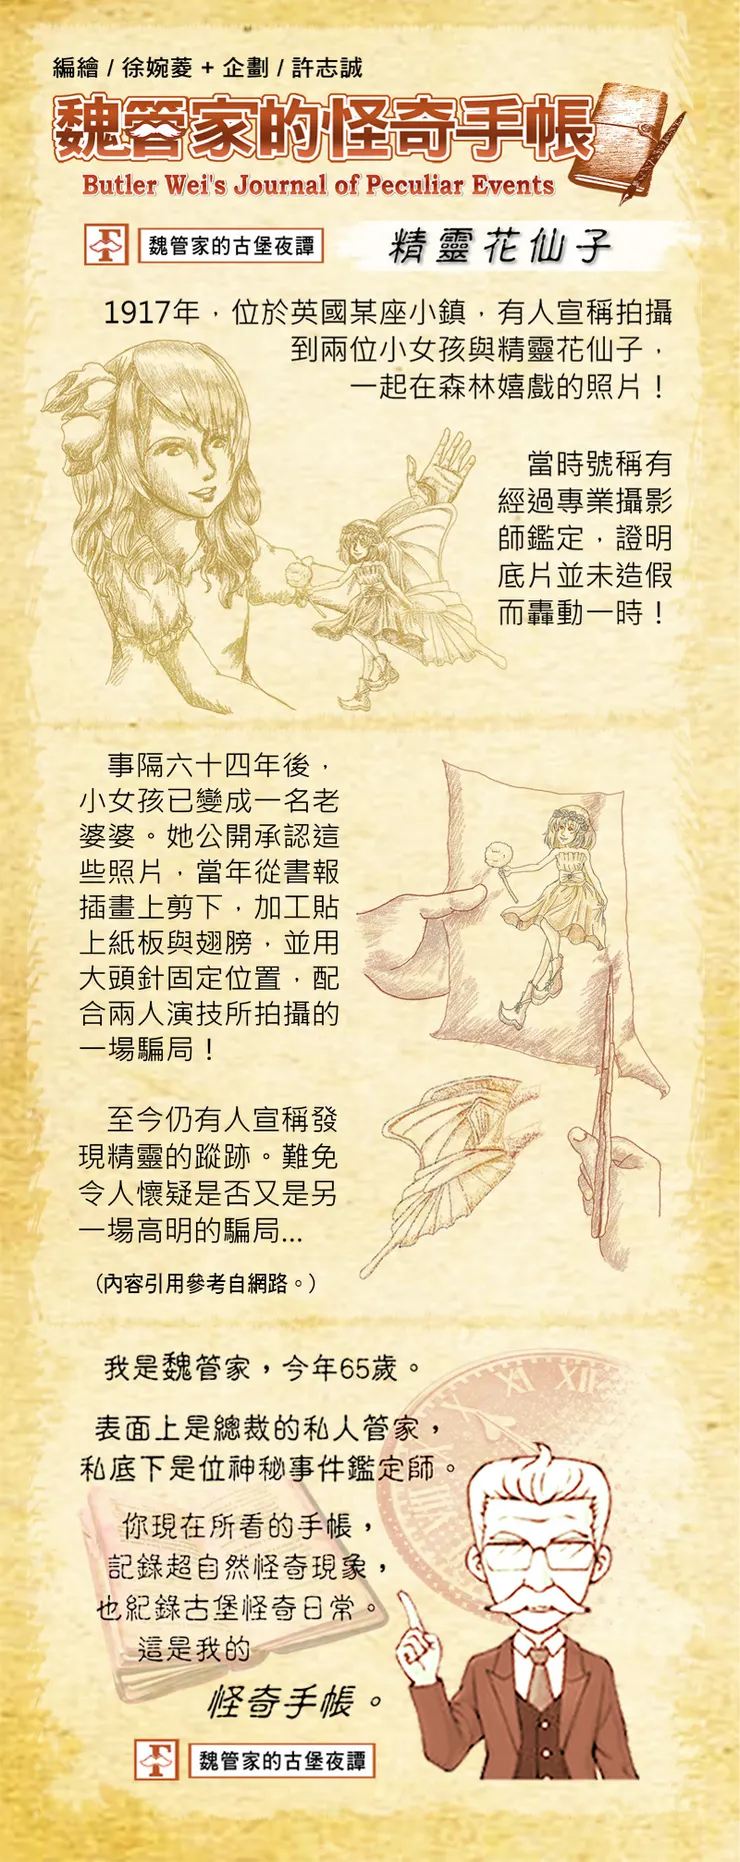 編繪 / 徐婉菱 + 企劃 / 許志誠
魏管家的怪奇手帳
Butler Wei's Journal of Peculiar Events
魏管家的古堡夜譚
精靈花仙子
1917年，位於英國某座小鎮，有人宣稱拍攝
到兩位小女孩與精靈花仙子，
一起在森林嬉戲的照片！
當時號稱有
經過專業攝影
師鑑定，證明
底片並未造假
而轟動一時！
事隔六十四年後，
小女孩已變成一名老
婆婆。她公開承認這
些照片，當年從書報
插畫上剪下，加工貼
上紙板與翅膀，並用
大頭針固定位置，配
合兩人演技所拍攝的
一場騙局！
至今仍有人宣稱發
現精靈的蹤跡。難免
令人懷疑是否又是另
一場高明的騙局...
（內容引用參考自網路。）
我是魏管家，今年65歲。
表面上是總裁的私人管家，
私底下是位神秘事件鑑定師。
你現在所看的手帳，
記錄超自然怪奇現象，
也紀錄古堡怪奇日常。
這是我的
怪奇手帳。
魏管家的古堡夜譚